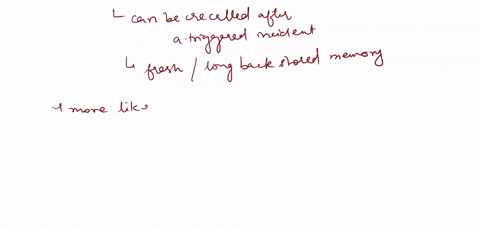 └ can be recalled after
a triggered incident
└ fresh / long back stored memory
↳ more lik